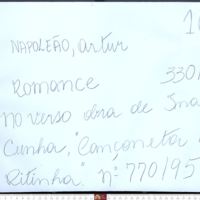 NAPOLEÃO, artur
Romance 3301
no verso obra de
Cunha, "Cançoneta
Ritinha" nº 770/95